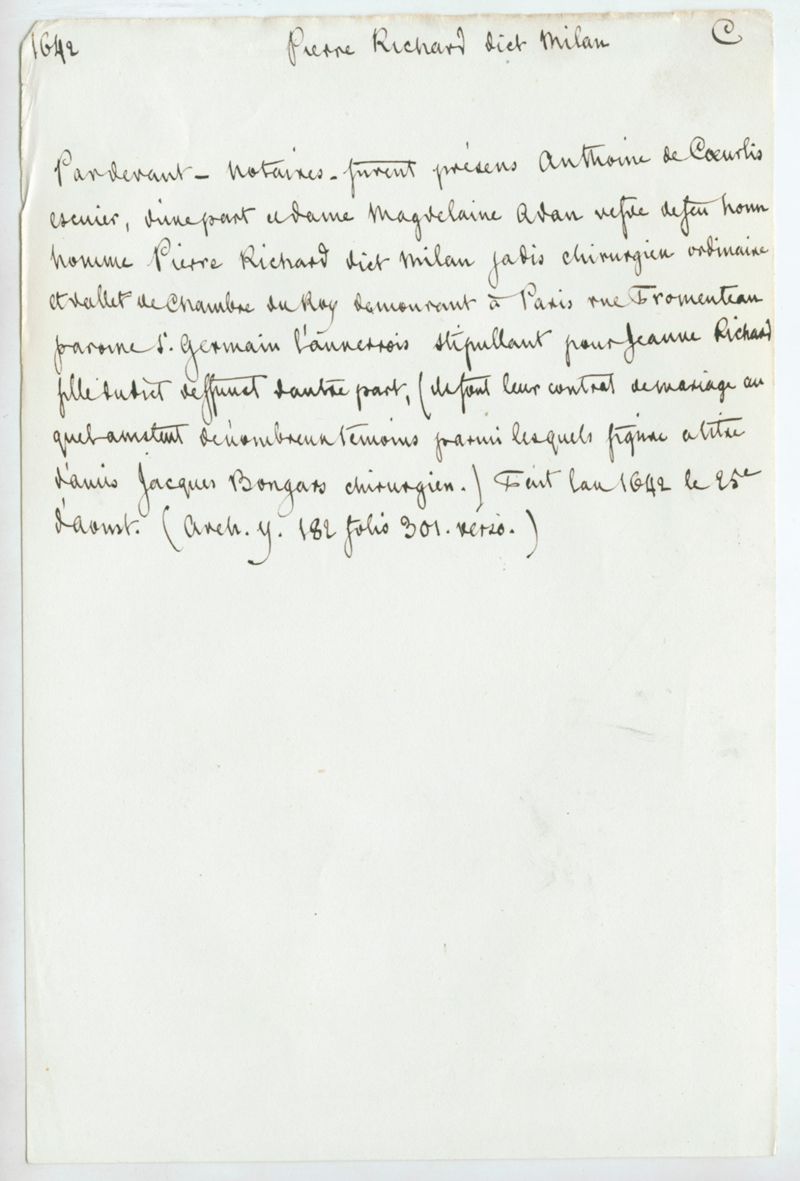 1642 Pierre Richard dict Milan C
Pardevant - notaires - furent présens Anthoine de Cœurlis
escuier, d'une part et dame Magdelaine Adan vefve de feu honn
homme Pierre Richard dict Milan jadis chirurgien ordinaire
et vallet de chambre du Roy demourant à Paris rue Fromenteau
paroisse St. Germain l'auxerrois stipullant pour Jeanne Richard
fille dudict deffunct d'autre part, (ils font leur contrat de mariage au
quel assistent de nombreux témoins parmi lesquels figure a titre
d'amis Jacques Bongars chirurgien.) Feit l'an 1642 le 25e
d'aoust. (Arch. y. 182 folio 301. verso.)